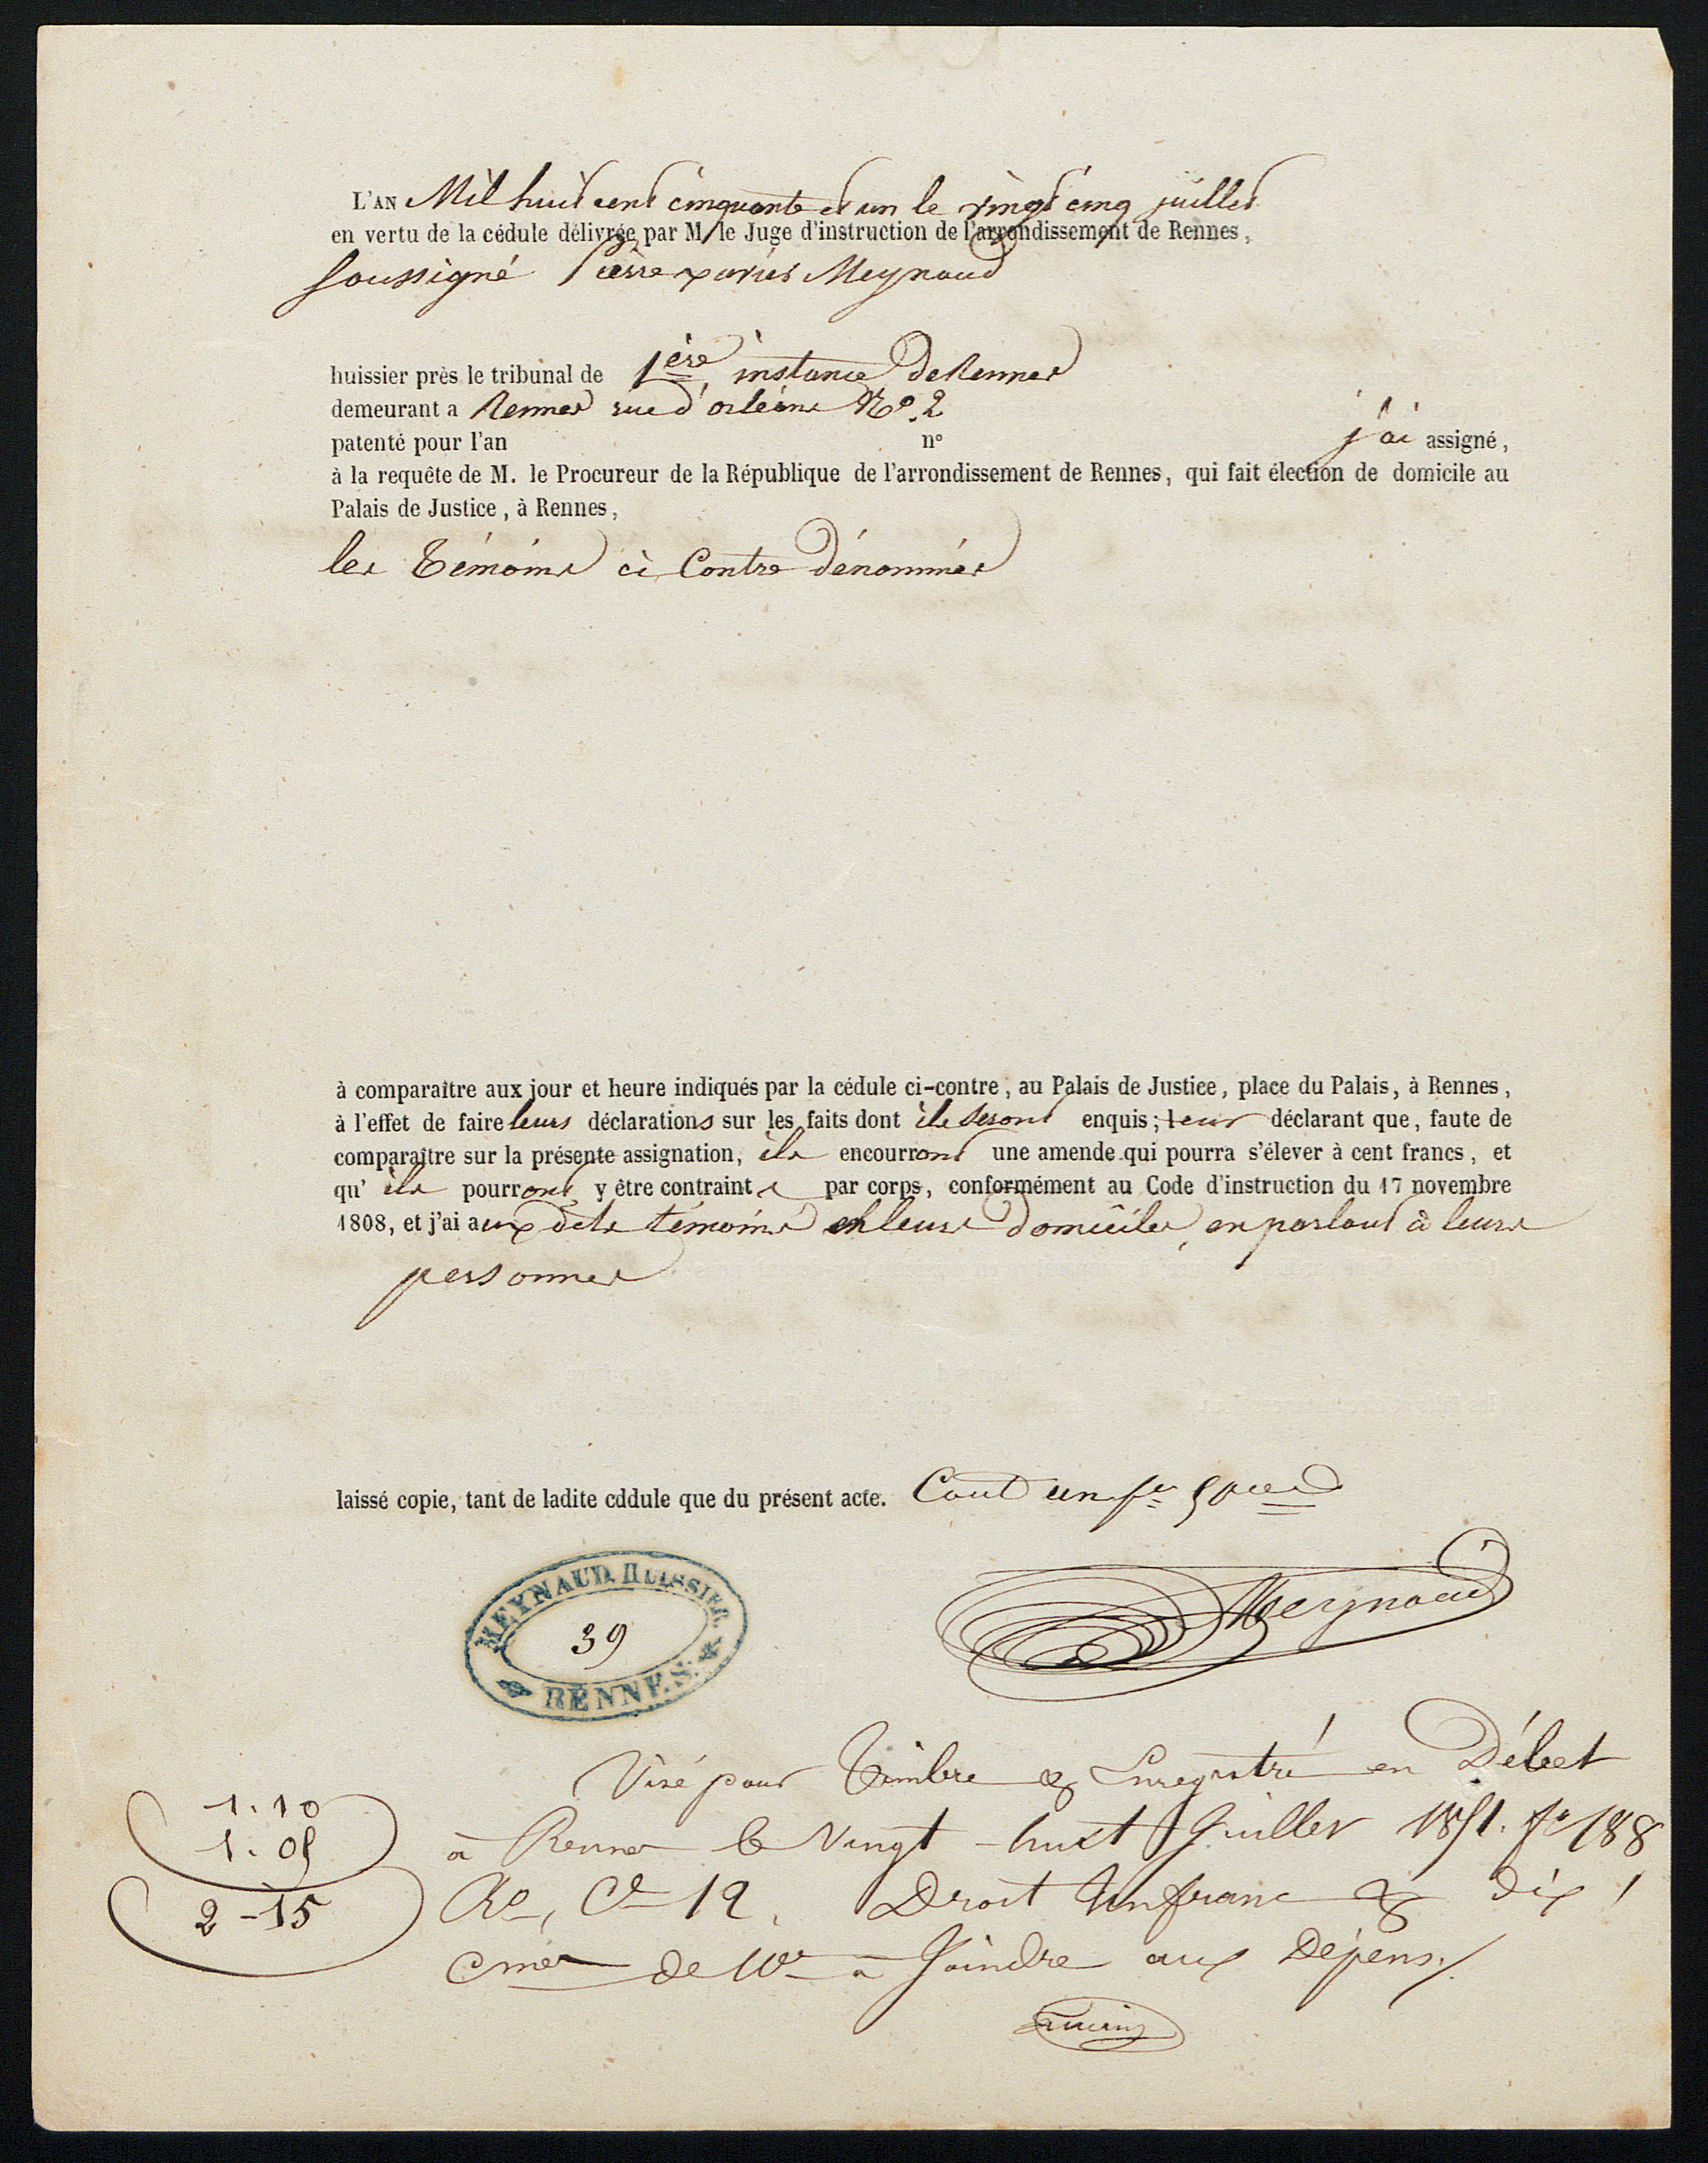 L'AN Mil huit cent cinquante et un le vingt cinq juillet
en vertu de la cédule délivrée par M. le Juge d'instruction de l'arrondissement de Rennes,
soussigné Pierre Meynaud
huissier près le tribunal de 1ère instance de Rennes
demeurant a Rennes rue d'orléans No. 2
patenté pour l'an n° j'ai assigné,
à la requête de M. le Procureur de la République de l'arrondissement de Rennes, qui fait élection de domicile au
Palais de Justice, à Rennes,
les témoins ci Contre dénommés
à comparaître aux jour et heure indiqués par la cédule ci-contre, au Palais de Justice, place du Palais, à Rennes,
à l'effet de faire leurs déclarations sur les faits dont ils seront enquis; leur déclarant que, faute de
comparaître sur la présente assignation, ils encourront une amende qui pourra s'élever à cent francs, et
qu' ils pourront y être contraints par corps, conformément au Code d'instruction du 17 novembre
1808, et j'ai aux dits témoins en leurs domiciles, en parlant à leurs
personnes
laissé copie, tant de ladite cddule que du présent acte. Cout un fr
MEYNAUD, HUISSIER
39
RENNES
Meynaud
Visé pour Timbre & Enregistré en Débet
à Rennes le Vingt-huit Juillet 1851. fo 188
Ro, Ce 12. Droit Un franc & dix
cmes de à Joindre aux Dépens./
1.10
1.05
2-15